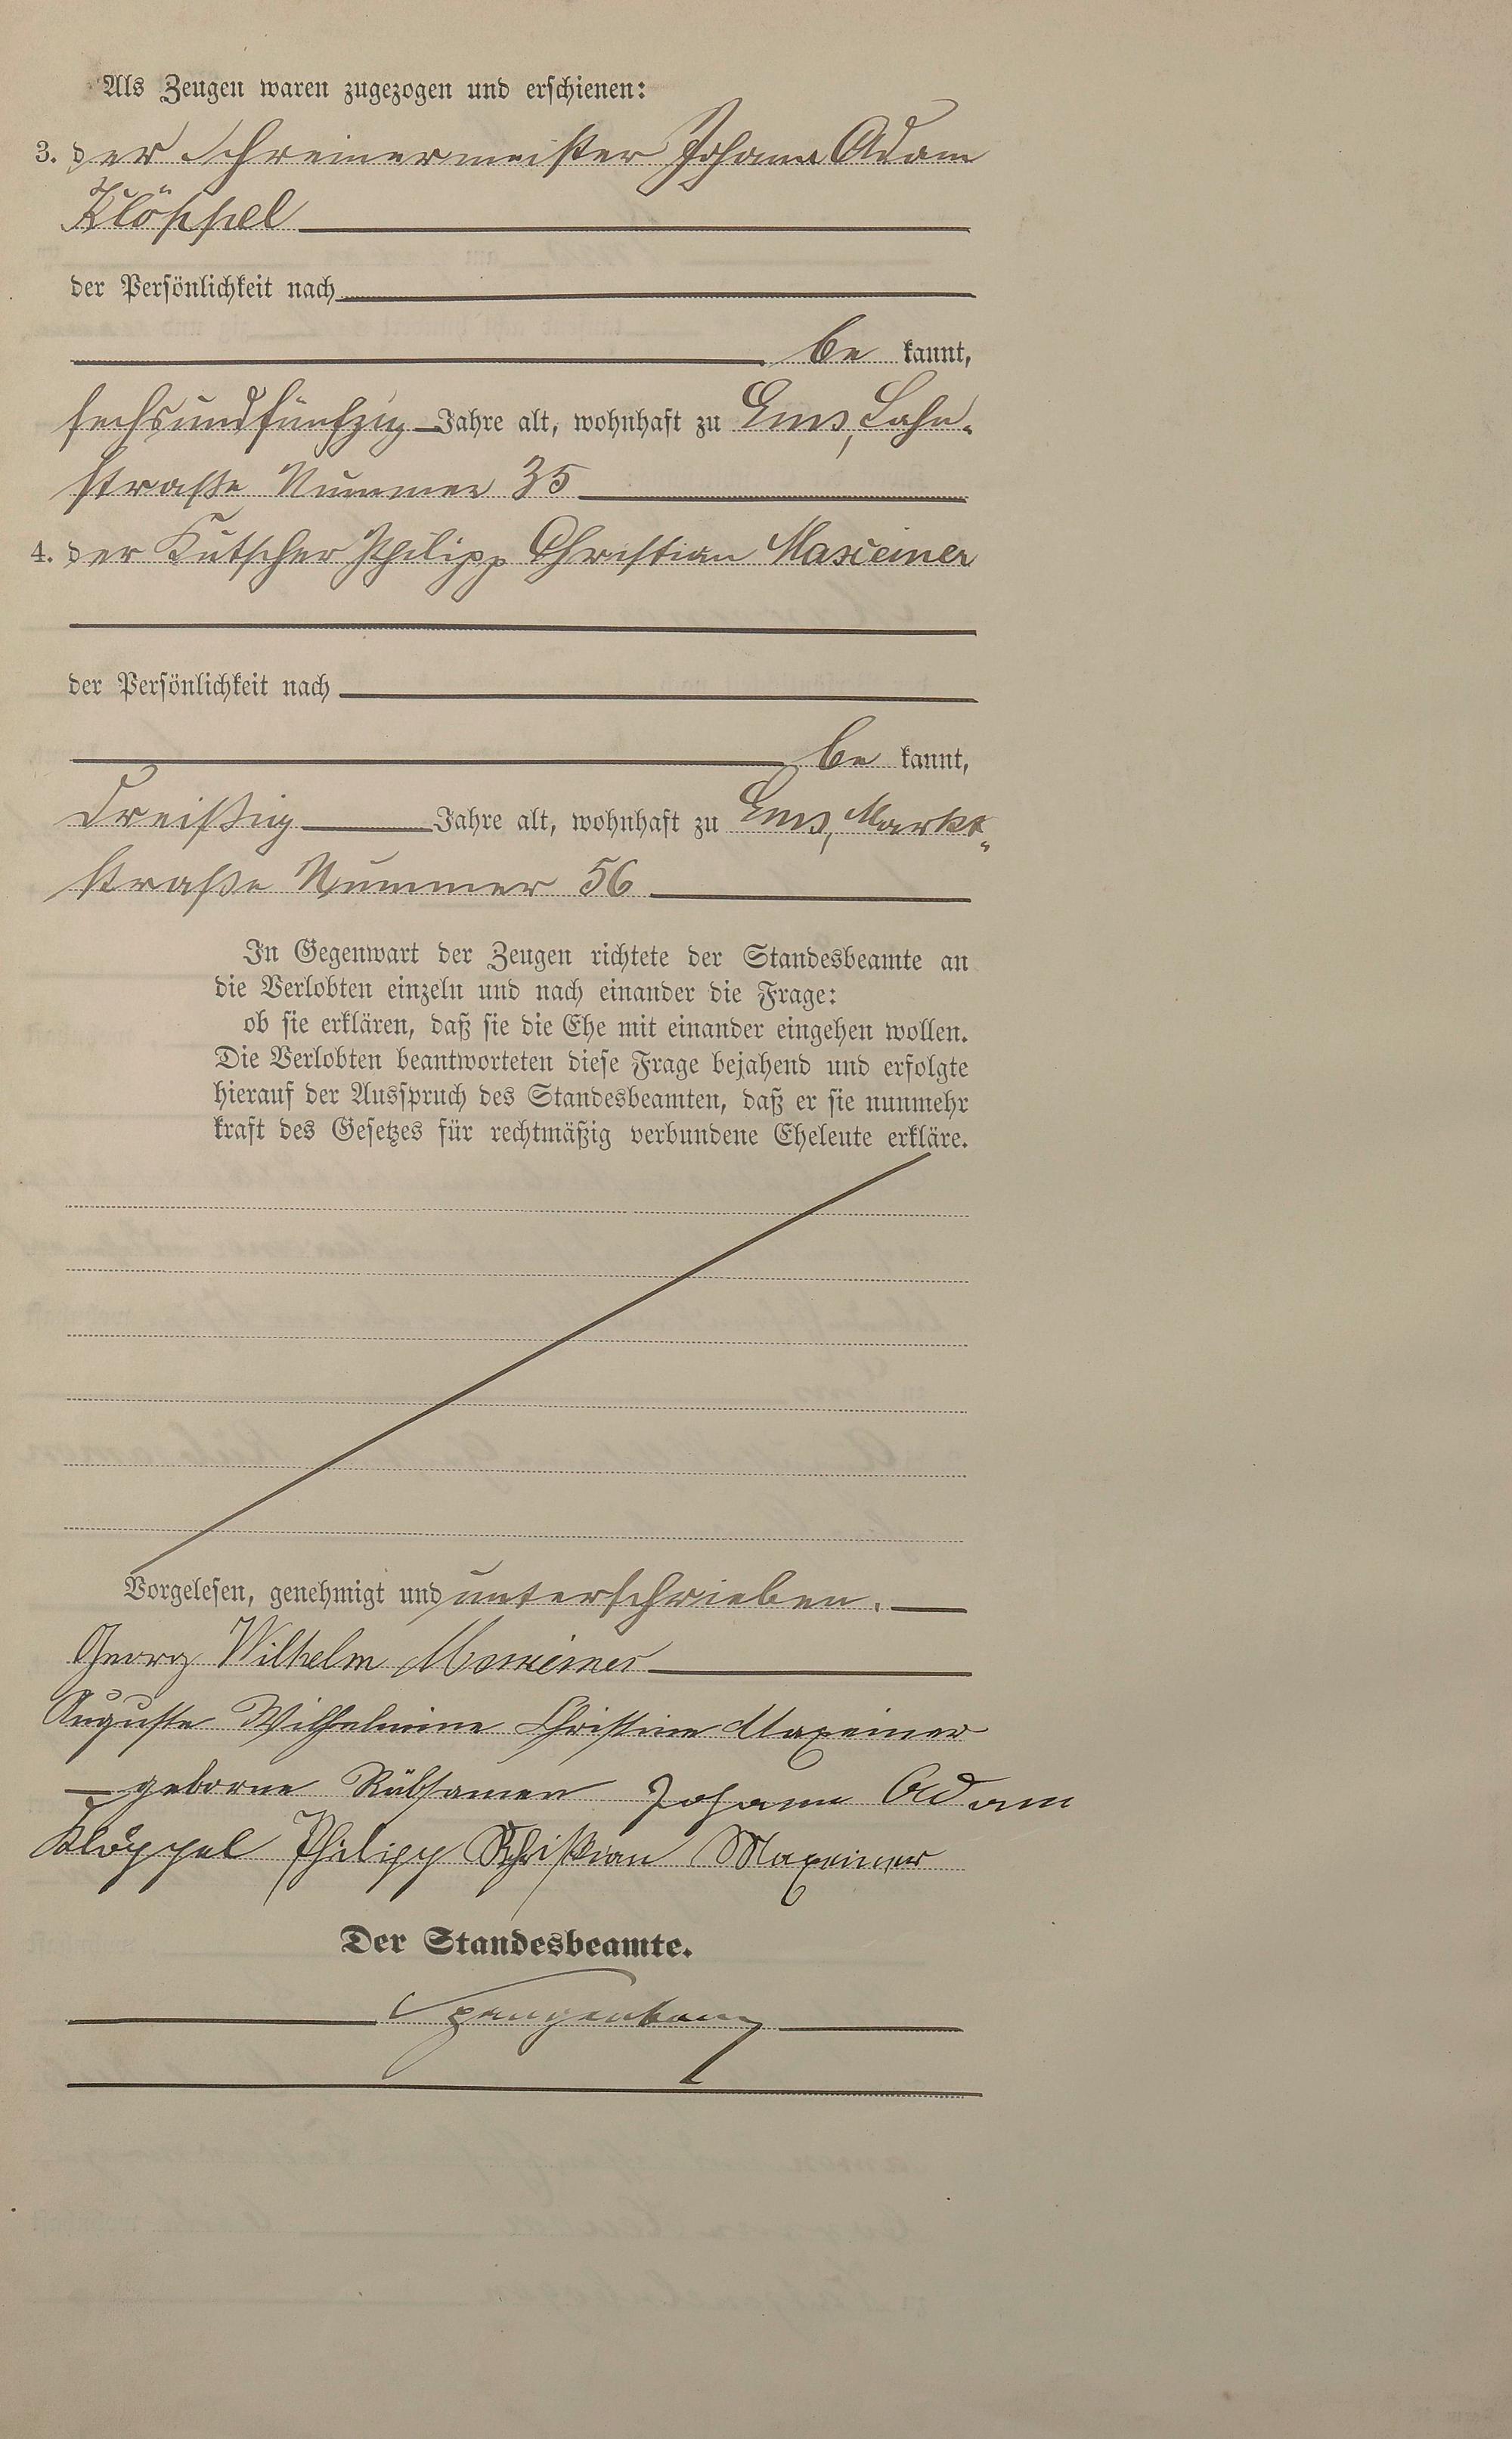 Als Zeugen waren zugezogen und erschienen:
3. der Schreinermeister Johann Adam
Klöppel
der Persönlichkeit nach
be kannt,
sechsundfünfzig Jahre alt, wohnhaft zu Ems, Lahn-
straße Nummer 35
4. der Kutscher Philipp Christian Maxeiner
der Persönlichkeit nach
be kannt,
dreißig Jahre alt, wohnhaft zu Ems, Markt-
straße Nummer 56
In Gegenwart der Zeugen richtete der Standesbeamte an
die Verlobten einzeln und nach einander die Frage:
ob sie erklären, daß sie die Ehe mit einander eingehen wollen.
Die Verlobten beantworteten diese Frage bejahend und erfolgte
hierauf der Ausspruch des Standesbeamten, daß er sie nunmehr
kraft des Gesetzes für rechtmäßig verbundene Eheleute erkläre.
Vorgelesen, genehmigt und unterschrieben.
Georg Wilhelm Maxeiner
Auguste Wilhelmine Christine Maxeiner
geborne Rübsamen Johann Adam
Klöppel Philipp Christian Maxeiner
Der Standesbeamte.
Spangenberg